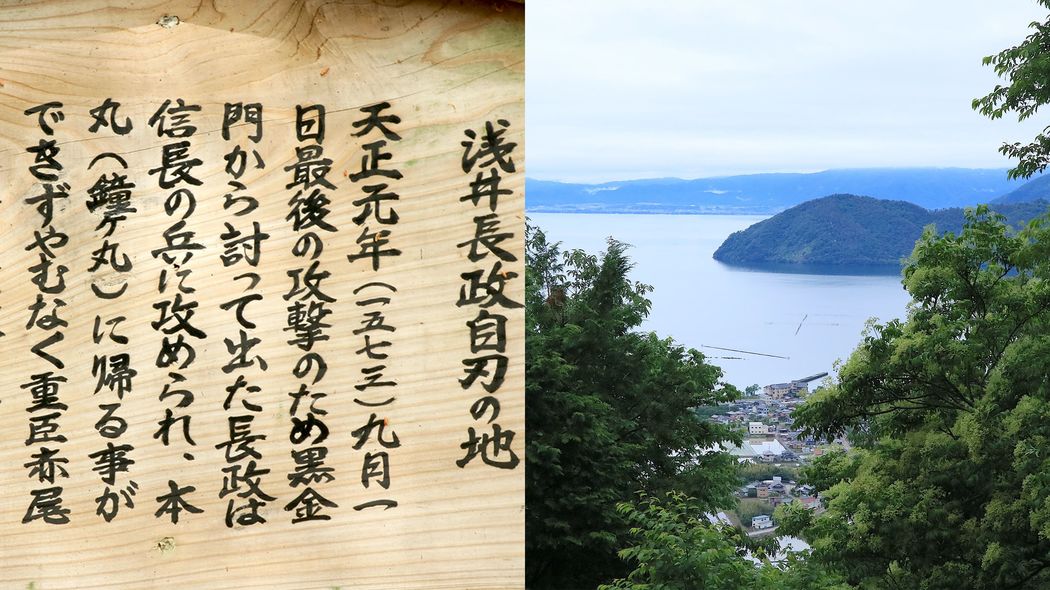 浅井長政自刃の地
天正元年（一五七三）九月一
日最後の攻撃のため黒金
門から討って出た長政は
信長の兵に攻められ、本
丸（鐘ヶ丸）に帰る事が
できずやむなく重臣赤尾